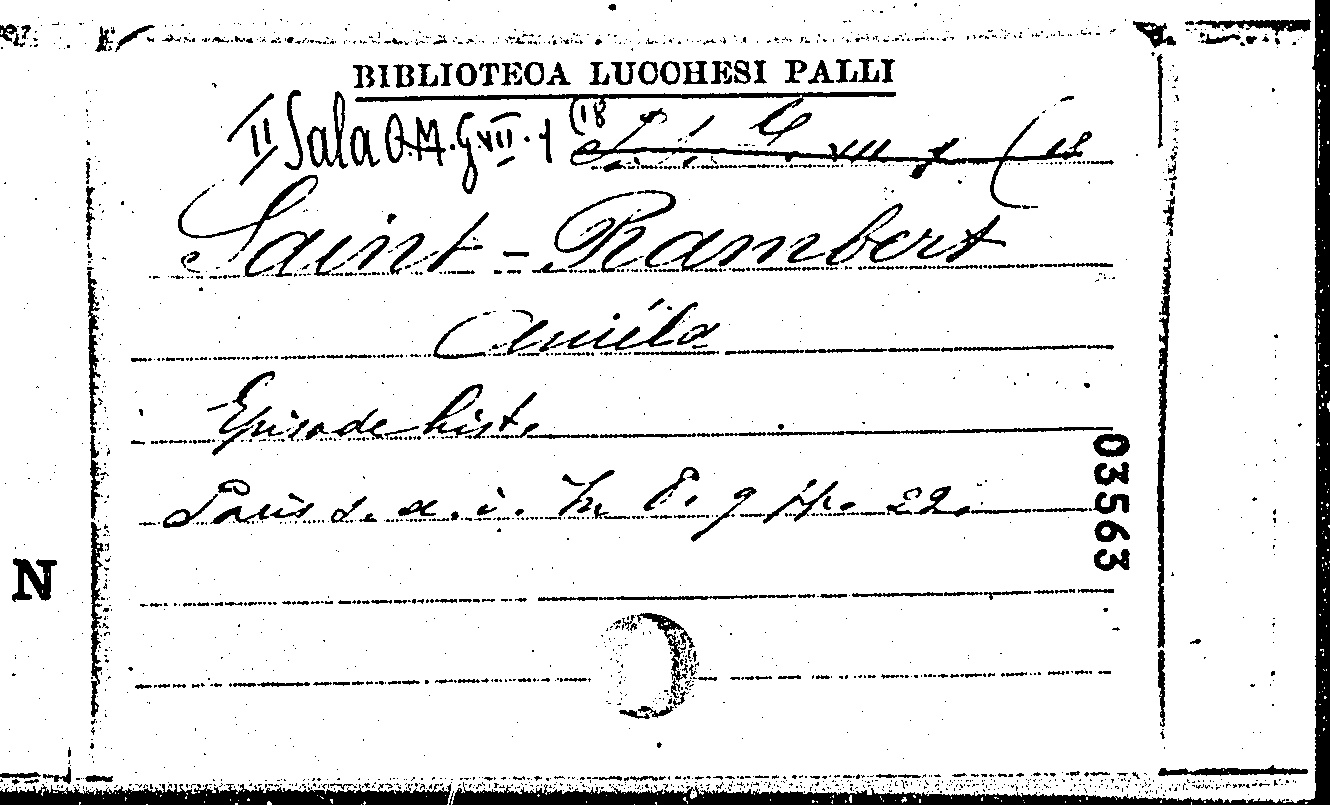 BIBLIOTECA LUCCHESI PALLI
II Sala O.M. G VII. 1 (18
Saint-Rambert
Amiéla
Episode hist.
Paris s. a. i. 8. g pp. 22.
03563
N